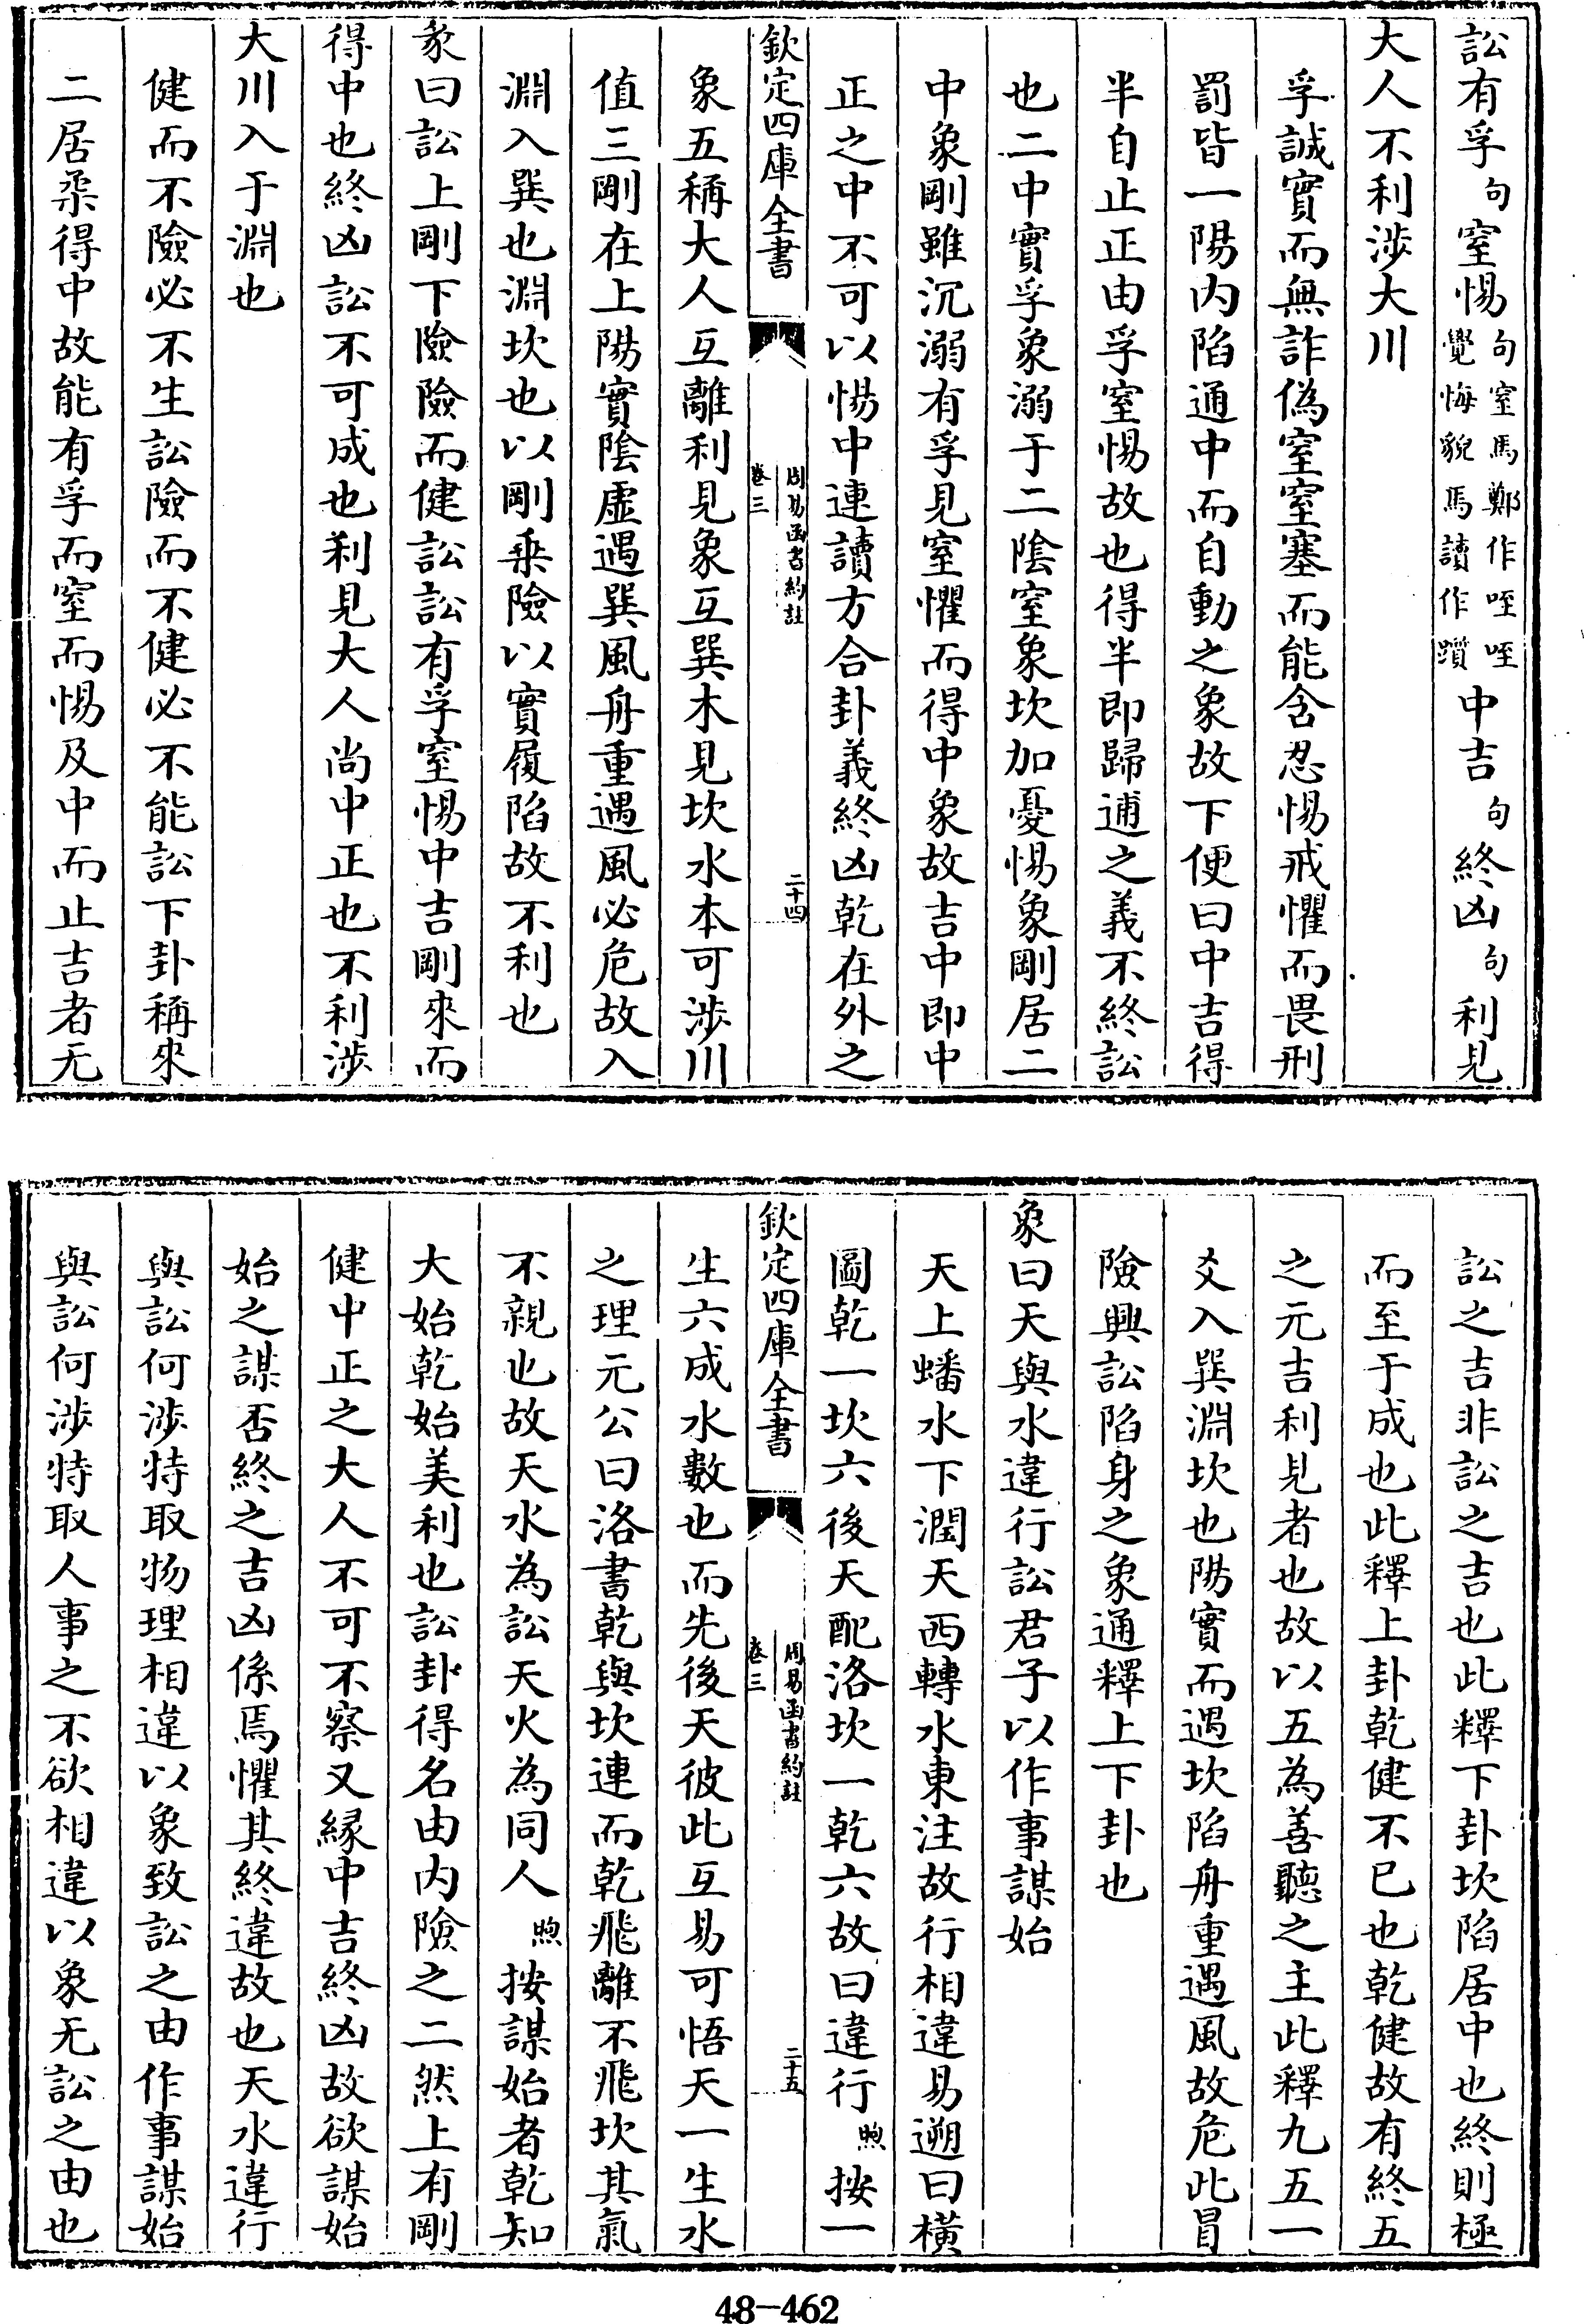 訟有孚句窒惕句窒馬鄭作咥咥覺悔貌馬讀作躓中吉句終凶句利見
大人不利涉大川
孚誠實而無詐偽窒窒塞而能含忍惕戒懼而畏刑
罰皆一陽内陷通中而自動之象故下便曰中吉得
半自止正由孚窒惕故也得半即歸逋之義不終訟
也二中實孚象溺于二陰窒象坎加憂惕象剛居二
中象剛雖沉溺有孚見窒懼而得中象故吉中即中
正之中不可以惕中連讀方合卦義終凶乾在外之
欽定四庫全書
周易函書約註
卷三
二十四
象五稱大人互離利見象互巽木見坎水本可涉川
值三剛在上陽實陰虛遇巽風舟重遇風必危故入
淵入巽也淵坎也以剛乘險以實履陷故不利也
彖曰訟上剛下險險而健訟訟有孚窒惕中吉剛來而
得中也終凶訟不可成也利見大人尚中正也不利涉
大川入于淵也
健而不險必不生訟險而不健必不能訟下卦稱來
二居柔得中故能有孚而窒而惕及中而止吉者无
訟之吉非訟之吉也此釋下卦坎陷居中也終則極
而至于成也此釋上卦乾健不已也乾健故有終五
之元吉利見者也故以五為善聽之主此釋九五一
爻入巽淵坎也陽實而遇坎陷舟重遇風故危此冒
險興訟陷身之象通釋上下卦也
象曰天與水違行訟君子以作事謀始
天上蟠水下潤天西轉水東注故行相違易遡曰橫
圖乾一坎六後天配洛坎一乾六故曰違行煦按一
欽定四庫全書
周易函書約註
卷三
二十五
生六成水數也而先後天彼此互易可悟天一生水
之理元公曰洛書乾與坎連而乾飛離不飛坎其氣
不親也故天水為訟天火為同人煦按謀始者乾知
大始乾始美利也訟卦得名由内險之二然上有剛
健中正之大人不可不察又緣中吉終凶故欲謀始
始之謀否終之吉凶係焉懼其終違故也天水違行
與訟何涉特取物理相違以象致訟之由作事謀始
與訟何涉特取人事之不欲相違以象无訟之由也
48-462